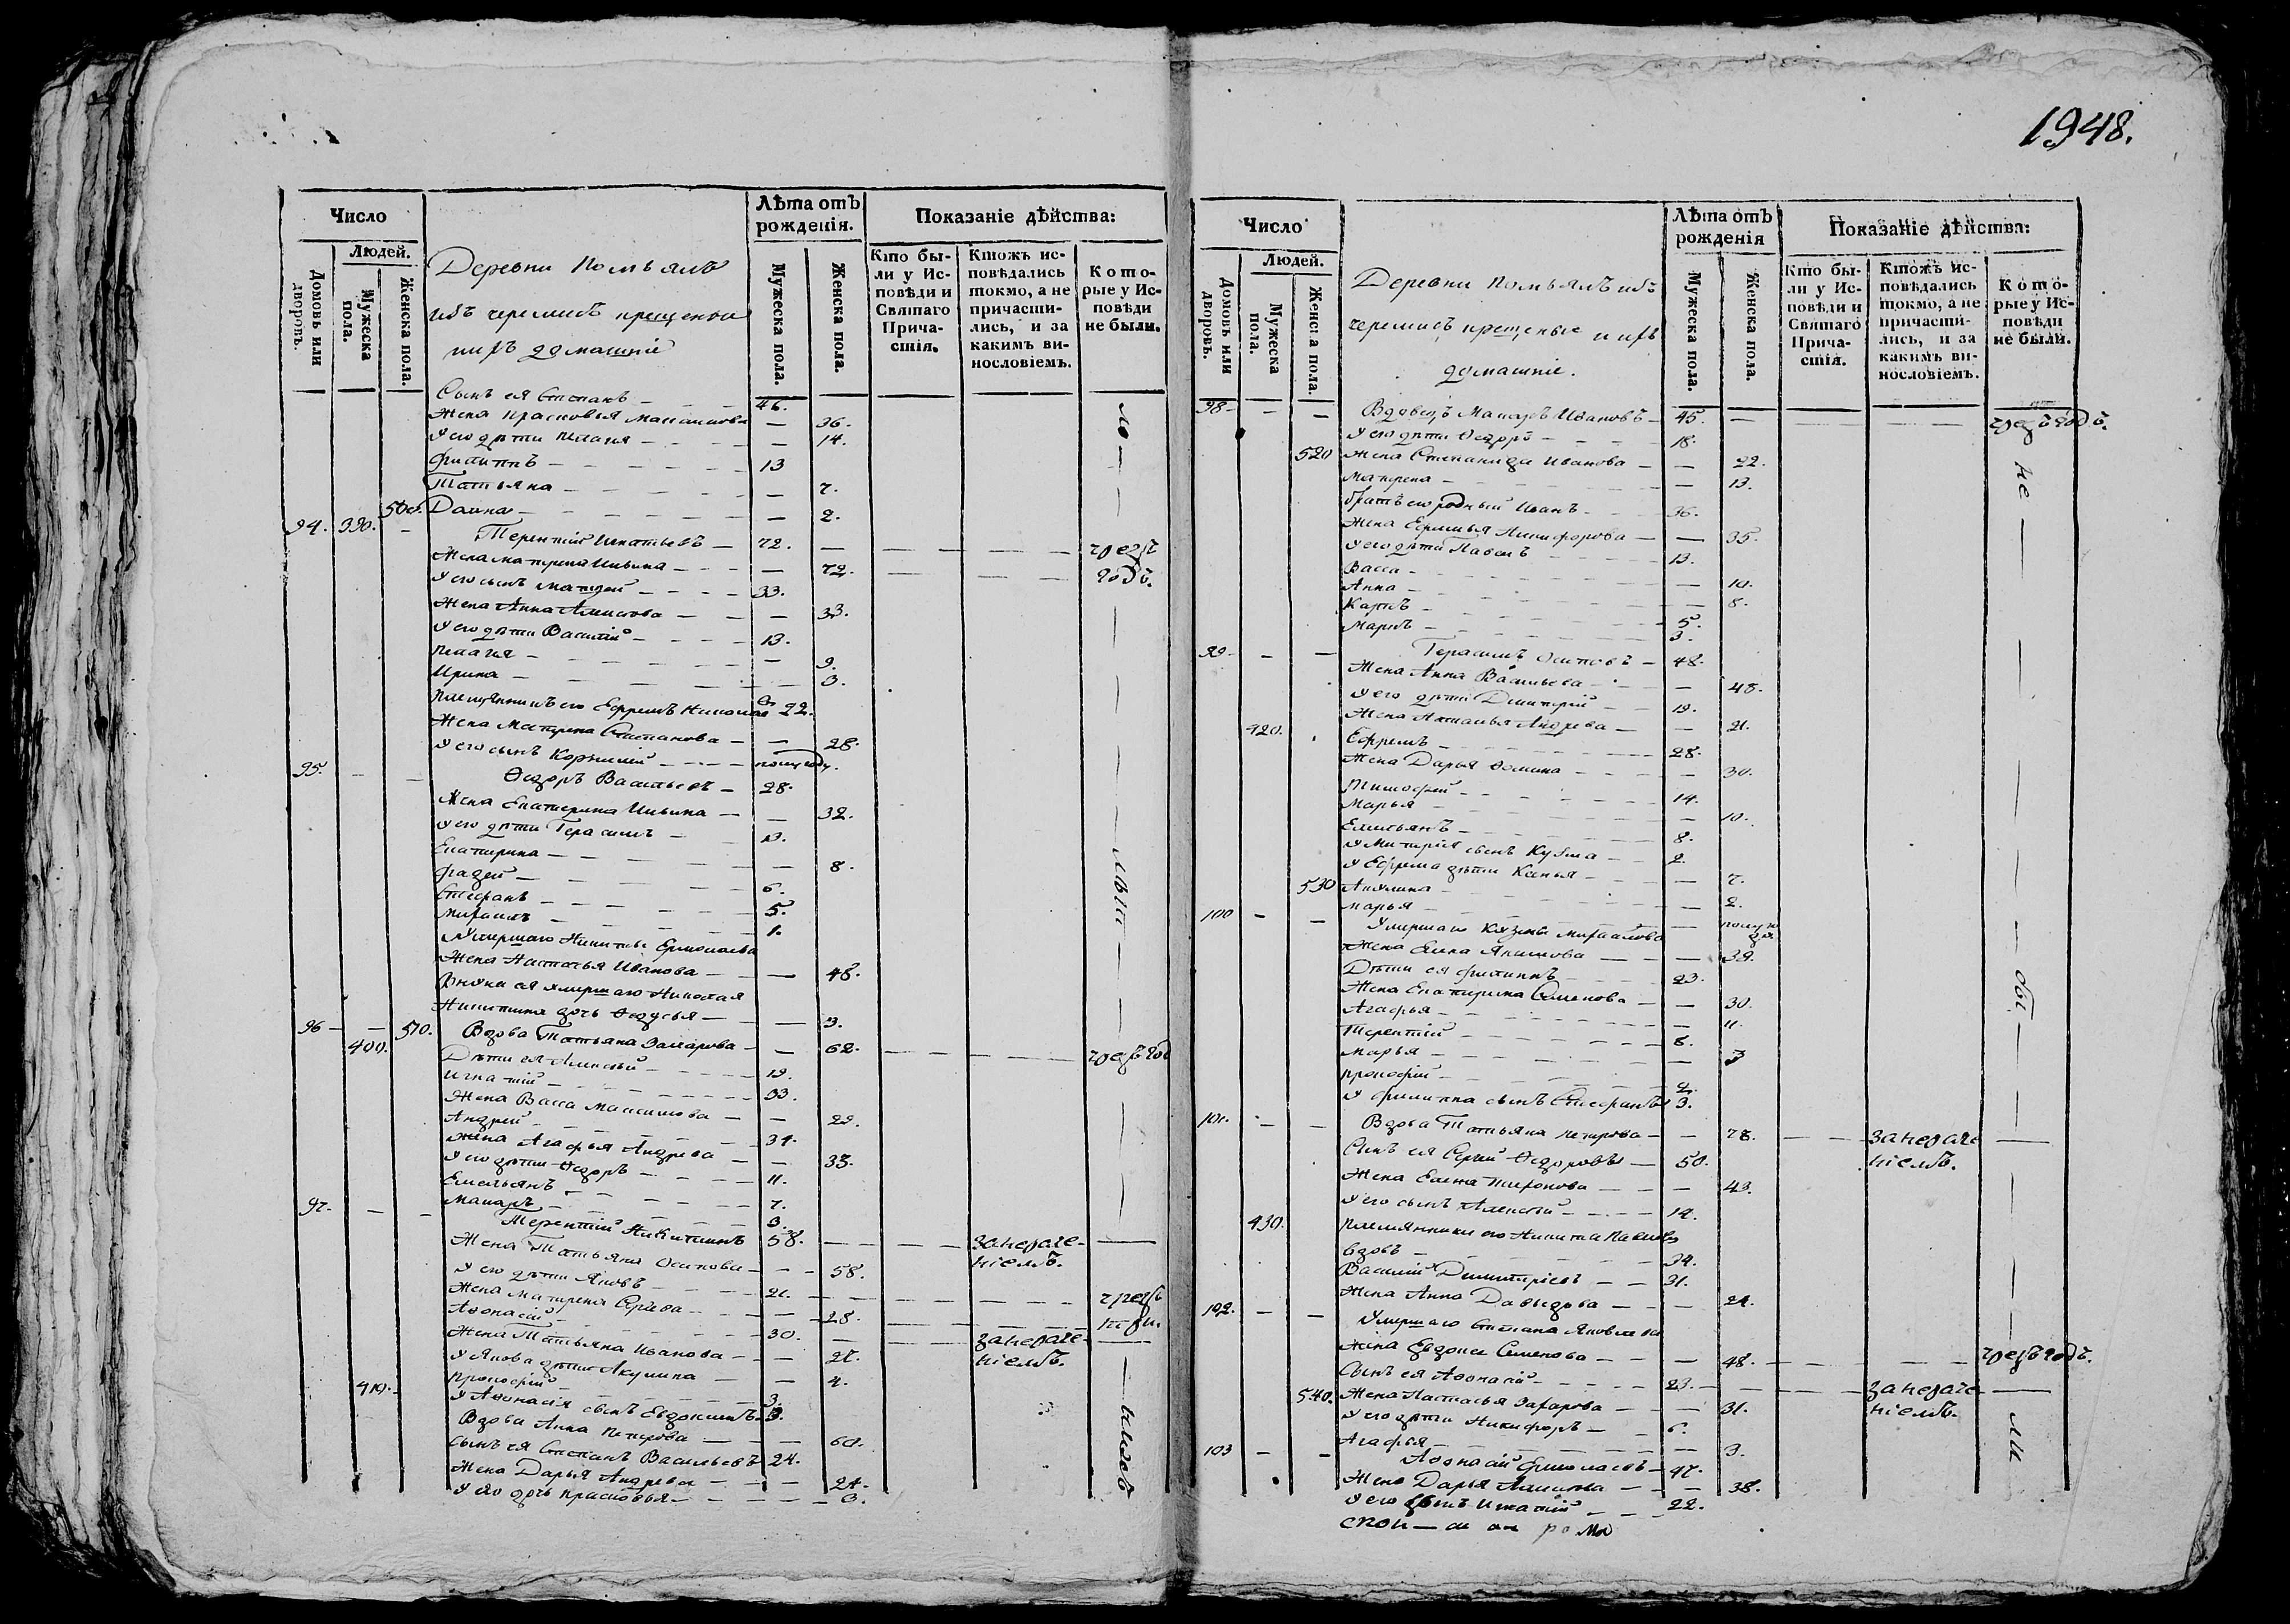 1948.
Число
Людей.
Домовъ или дворовъ.
Мужеска пола.
Женска пола.
Деревни Помъялъ
изъ черемисъ крещеныи
ихъ домашніе
Лѣта отъ рожденія.
Мужеска пола.
Женска пола.
Показаніе дѣйства:
Кто были у Исповѣди и Святаго Причастія.
Ктожъ исповѣдались токмо, а не причастились, и за какимъ винословіемъ.
Которые у Исповѣди не были.
Сынъ ея Степанъ 46.
Жена Прасковья Максимова 36.
У его дѣти Пелагея 14.
Филиппъ 13
Татьяна 7.
500. Домна 2.
94. 390. Терентій Игнатьевъ 72. чрезъ
Жена Матрена Ильина 72. годъ.
У его сынъ Матвей 33.
Жена Анна 33.
У его дѣти Василій 13.
Пелагея 9.
Ирина 3.
Племянникъ его Ефремъ 22.
Жена Матрена Степанова 28.
У его сынъ полугоду.
95. Ѳедоръ Васильевъ 28.
Жена Екатерина Ильина 32.
У его дѣти Герасимъ 13.
Екатерина 8.
Фадей 6.
Стефанъ 5.
Михаилъ 1.
Умершаго Никиты Ермолаева
Жена Настасья Иванова 48.
Внуки ея умершаго Николая
Никитина дочь Ѳедосья 3.
96 510. Вдова Татьяна Захарова 62. чрезъ год
400. Дѣти ея Алексѣй 19.
Игнатій 33.
Жена Васса Максимова 29.
Андрей 31.
Жена Агафья Андреева 33.
У его дѣти Ѳедоръ 11.
Емельянъ 7.
Макаръ 3.
97. Терентій Никитинъ 58. за нераче-
Жена Татьяна Осипова 58. ніемъ.
У его дѣти Яковъ 21.
Жена Матрена 28. чрезъ
Аѳонасій 30. за нераче-
Жена Татьяна Иванова 27. ніемъ.
У Якова дѣти Акулина 4.
410. Прокофій 3.
У Аѳонасія сынъ Евдокимъ 3.
Вдова Анна Петрова 60.
Сынъ ея Степанъ Васильевъ 24.
Жена Дарья Андреева 24.
У его дочь Прасковья 3.
Число
Людей.
Домовъ или дворовъ.
Мужеска пола.
Женска пола.
Деревни Помъялъ изъ
черемисъ крещеные и ихъ
домашніе.
Лѣта отъ рожденія
Мужеска пола.
Женска пола.
Показаніе дѣйства:
Кто были у Исповѣди и Святаго Причастія.
Ктожъ исповѣдались токмо, а не причастились, и за какимъ винословіемъ.
Которые у Исповѣди не были.
98 Вдовецъ Макаръ Ивановъ 45. чрезъ годъ.
У его дѣти Ѳедоръ 18.
520 Жена Степанида Иванова 22.
Матрена 13.
Братъ его родный Иванъ 36.
Жена Никифорова 35.
У его дѣти Павелъ 13.
Васса 10.
Анна 8.
Карпъ 5.
Маркъ 3.
99 Герасимъ Осиповъ 48.
Жена Анна Васильева 48.
У его дѣти Димитрій 19.
Жена Наталья Андреева 21.
420. Ефремъ 28.
Жена Дарья Ѳомина 30.
Тимофей 14.
Марья 10.
Емельянъ 8.
У Митрія сынъ Кузма 2.
У Ефрема дѣти Ксенья 7.
530 Акулина 2.
Марья
100 Умершаго Кузмы Михайлова
Жена Якимова 39.
Дѣти ея Филиппъ 23.
Жена Екатерина Семенова 30.
Агафья 11.
Терентій 8.
Марья 3
Прокофій 2.
У Филиппа сынъ Стефанъ 3.
101. Вдова Татьяна Петрова 78. за нераче
Сынъ ея Сергей Ѳедоровъ 50. ніемъ.
Жена Елена 43.
У его сынъ Алексѣй 14.
430. Племянники его Никита
вдовъ 34.
Василій Димитріевъ 31.
Жена Анна Давыдова 24.
102. Умершаго Степана Яковлева
Жена Евдокея Семенова 48. чрезъ годъ.
Сынъ ея Аѳонасій 23. за нераче
540. Жена Настасья Захарова 31. ніемъ.
У его дѣти Никифоръ 6.
Агафья 3.
103 Аѳонасій Ермолаевъ 47.
Жена Дарья 38.
У его сынъ Игнатій 22.